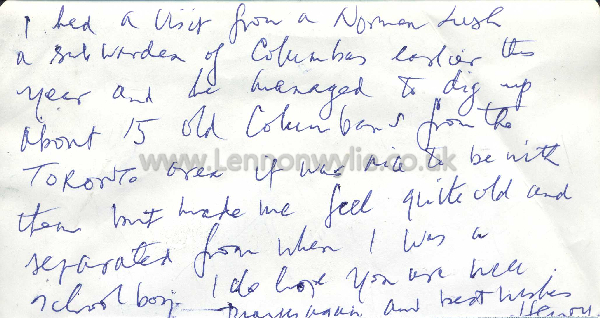 I had a visit from a Norman Lush
a sub warden of Columbas earlier this
year and he managed to dig up
about 15 old Columbans from the
TORONTO area it was nice to be with
them but made me feel quite old and
separated from when I was a
schoolboy I do hope you are well
Thanks again and best wishes
Henry
www.Lennonwylie.co.uk